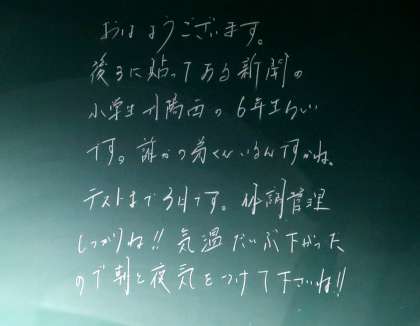 おはようございます。
後ろに貼ってある新聞の
小学生は陽西の6年生らしい
です。誰かの弟くんいるんですかね。
テストまで3日です。体調管理
しっかりね!! 気温だいぶ下がった
ので朝と夜気をつけて下さいね!!